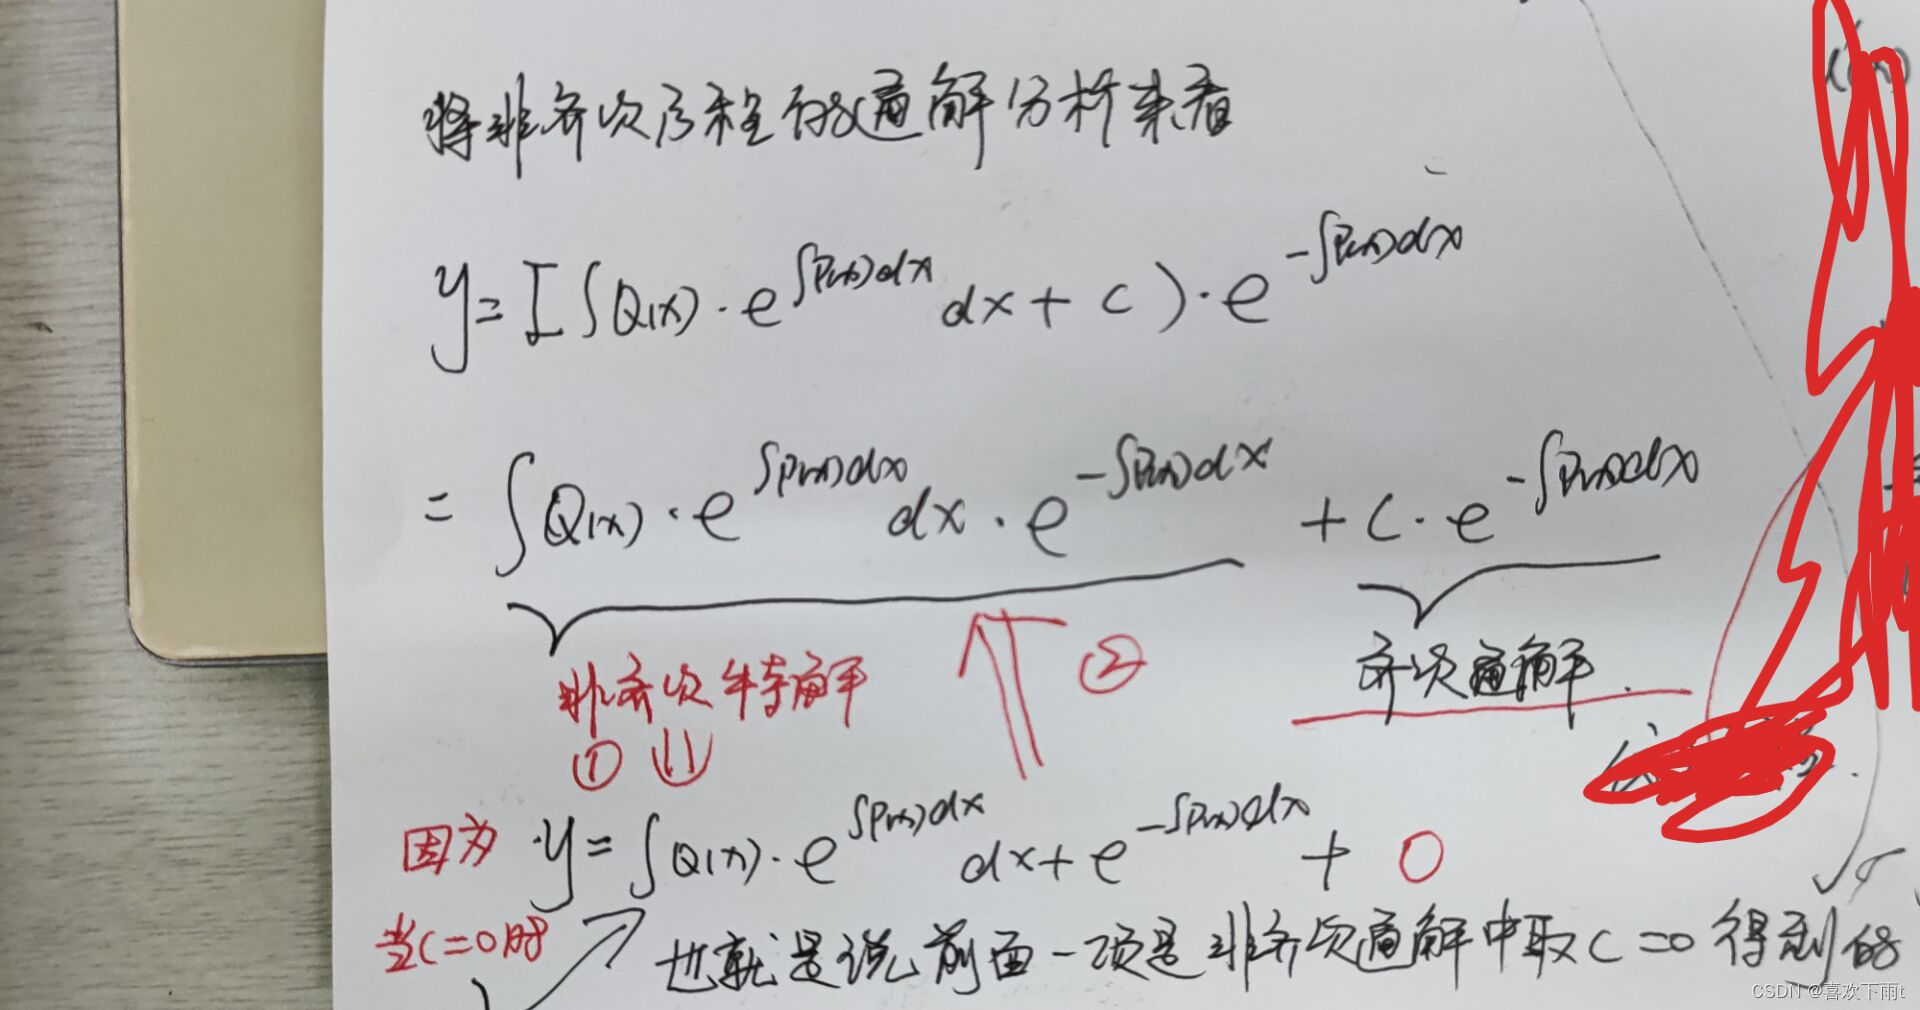 将非齐次方程的通解分析来看
y=[∫Q(x)·e^{∫P(x)dx}dx+C)·e^{-∫P(x)dx}
=∫Q(x)·e^{∫P(x)dx}dx·e^{-∫P(x)dx}+C·e^{-∫P(x)dx}
非齐次特解 ② 齐次通解
①
因为 y=∫Q(x)·e^{∫P(x)dx}dx+e^{-∫P(x)dx}+0
当C=0时 也就是说前面一项是非齐次通解中取C=0得到的
CSDN @喜欢下雨t